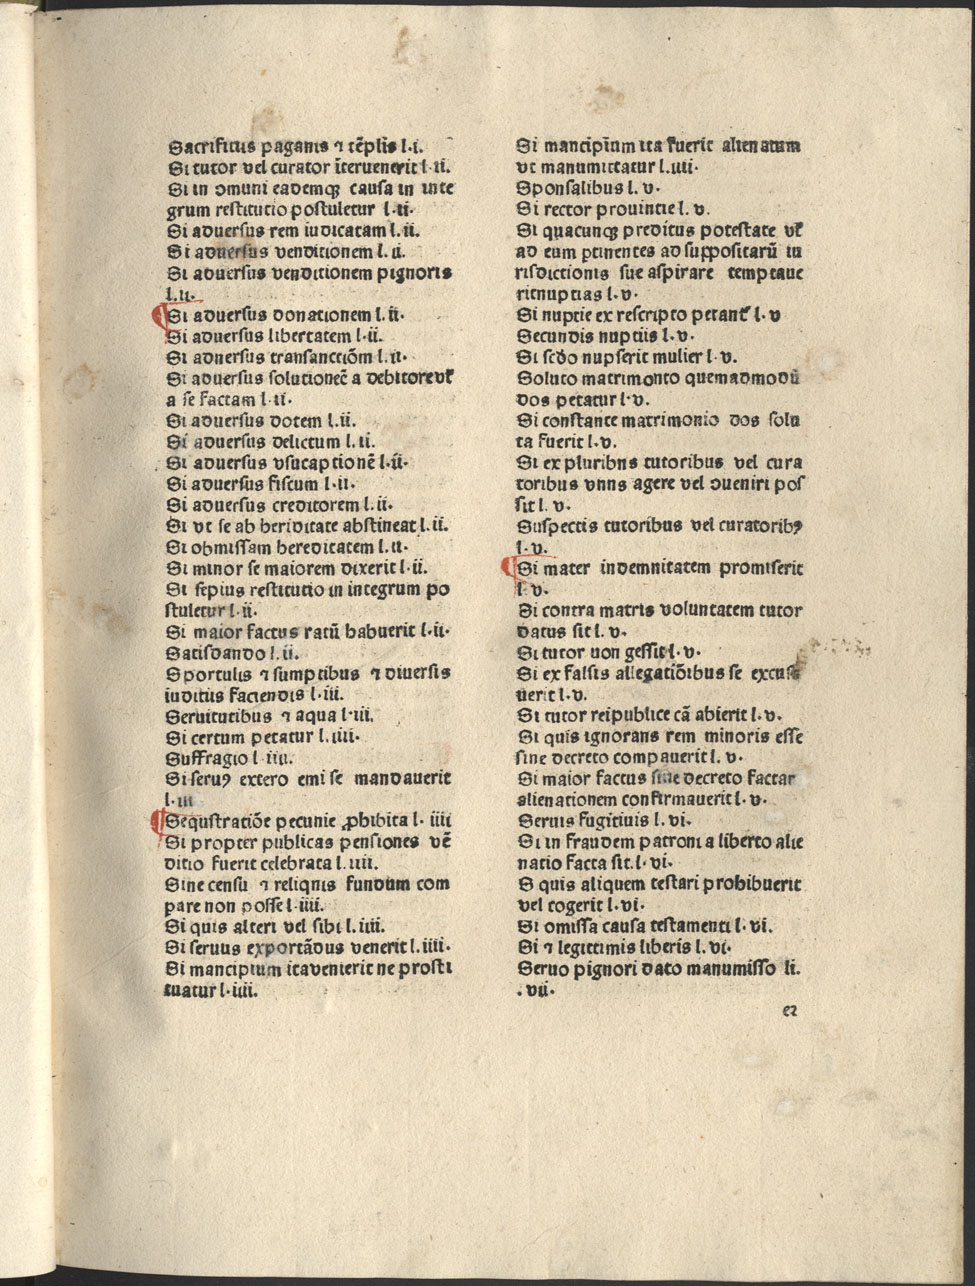 Sacrificiis paganis ⁊ tẽplis l.i.
Si tutor vel curator ĩteruenerit l·ii.
Si in ↄmuni eademqꝫ causa in inte
grum restitutio postuletur l·ii·
Si aduersus rem iudicatam l.ii.
Si aduersus venditionem l.ii.
Si aduersus venditionem pignoris
l.ii·
¶Si aduersus donationem l.ii·
Si aduersus libertatem l·ii.
Si aduersus transanctiõm l.ii·
Si aduersus solutioneč a debitore vł
a se factam l·ii.
Si aduersus dotem l.ii.
Si aduersus delictum l.ii.
Si aduersus vsucaptionẽ l·ii·
Si aduersus fiscum l·ii.
Si aduersus creditorem l.ii.
Si vt se ab heriditate abstineat l.ii.
Si obmissam hereditatem l.ii·
Si minor se maiorem dixerit l·ii.
Si sepius restitutio in integrum po
stuletur l·ii.
Si maior factus ratũ habuerit l·ii·
Satisdando l.ii.
Sportulis ⁊ sumptibus ⁊ diuersis
iuditiis faciendis l·iii.
Seruitutibus ⁊ aqua l·iii.
Si certum petatur l.iiii·
Suffragio l·iiii.
Si seruꝰ extero emi se mandauerit
l·iii
¶Sequstratiõe pecunie ꝓhibita l·iiii
Si propter publicas pensiones vẽ
ditio fuerit celebrata l.iiii.
Sine censu ⁊ reliqnis fundum com
pare non posse l·iiii.
Si quis alteri vel sibi l.iiii.
Si seruus exportãdus venerit l.iiii·
Si mancipium itavenierit ne prosti
tuatur l·iiii.
Si mancipium ita fuerit alienatum
vt manumittatur l.iiii·
Sponsalibus l.v·
Si rector prouintie l.v.
Si quacunqꝫ preditus potestate vł
ad eum ptinentes ad suppositarũ iu
risdictionis sue aspirare temptaue
ritnuptias l·v·
Si nuptie ex rescripto petant᷑ l·v
Secundis nuptiis l·v.
Si scđo nupserit mulier l·v.
Soluto matrimonto quemadmodũ
dos petatur l·v.
Si constante matrimonio dos solu
ta fuerit l·v.
Si ex pluribns tutoribus vel cura
toribus vnns agere vel ↄueniri pos
sit l.v·
Suspectis tutoribus vel curatoribꝰ
l·v.
¶Si mater indemnitatem promiserit
l·v·
Si contra matris voluntatem tutor
datus sit l.v·
Si tutor uon gessit l·v·
Si ex falsis allegatiõibus se excusa
uerit l·v.
Si tutor reipublice cã abierit l·v.
Si quis ignorans rem minoris esse
sine decreto compauerit l.v·
Si maior factus sine decreto factar
alienationem confirmauerit l·v·
Seruis fugitiuis l.vi.
Si in fraudem patroni a liberto alie
natio facta sit.l·vi·
S quis aliquem testari prohibuerit
vel cogerit l·vi·
Si omissa causa testamenti l·vi.
Si ⁊ legittimis liberis l.vi·
Seruo pignori dato manumisso li.
.vii·
e2